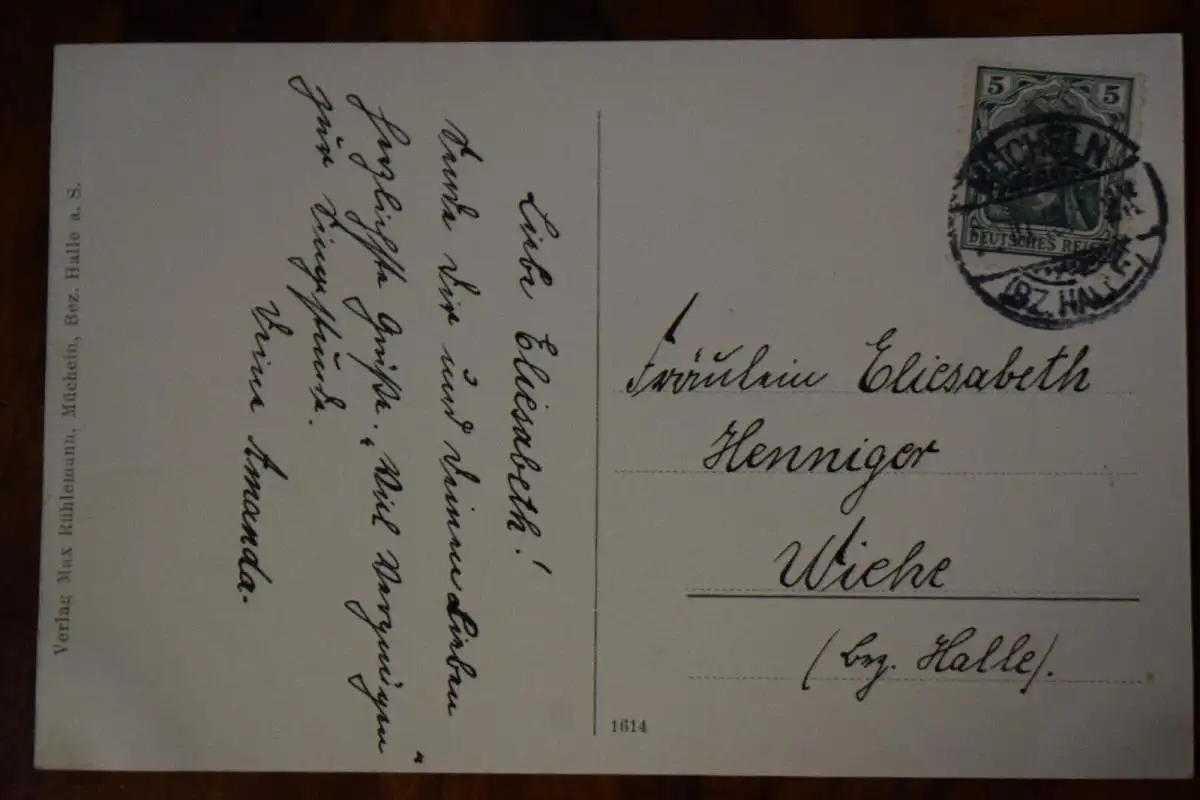 Liebe Eliesabeth!
Sende Dir und Deinen Lieben
herzlichste Grüße. „Viel Vergnügen“
zur Singstunde.
Deine Amanda.
Verlag Max Rühlemann, Mücheln, Bez. Halle a. S.
1614
5 5
DEUTSCHES REICH
MÜCHELN
(BZ. HALLE)
Fräulein Eliesabeth
Henniger
Wiehe
(bez. Halle).